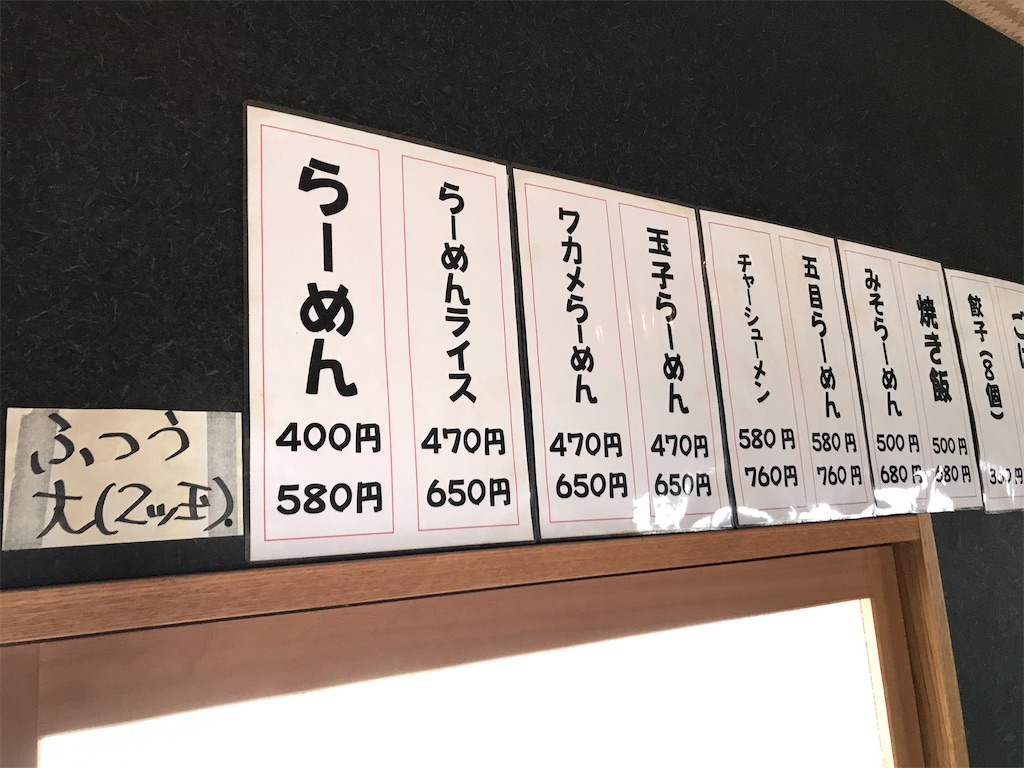 ふつう
大(2ッ玉).
らーめん
400円
580円
らーめんライス
470円
650円
ワカメらーめん
470円
650円
玉子らーめん
470円
650円
チャーシューメン
580円
760円
五目らーめん
580円
760円
みそらーめん
500円
680円
焼き飯
500円
680円
餃子(8個)